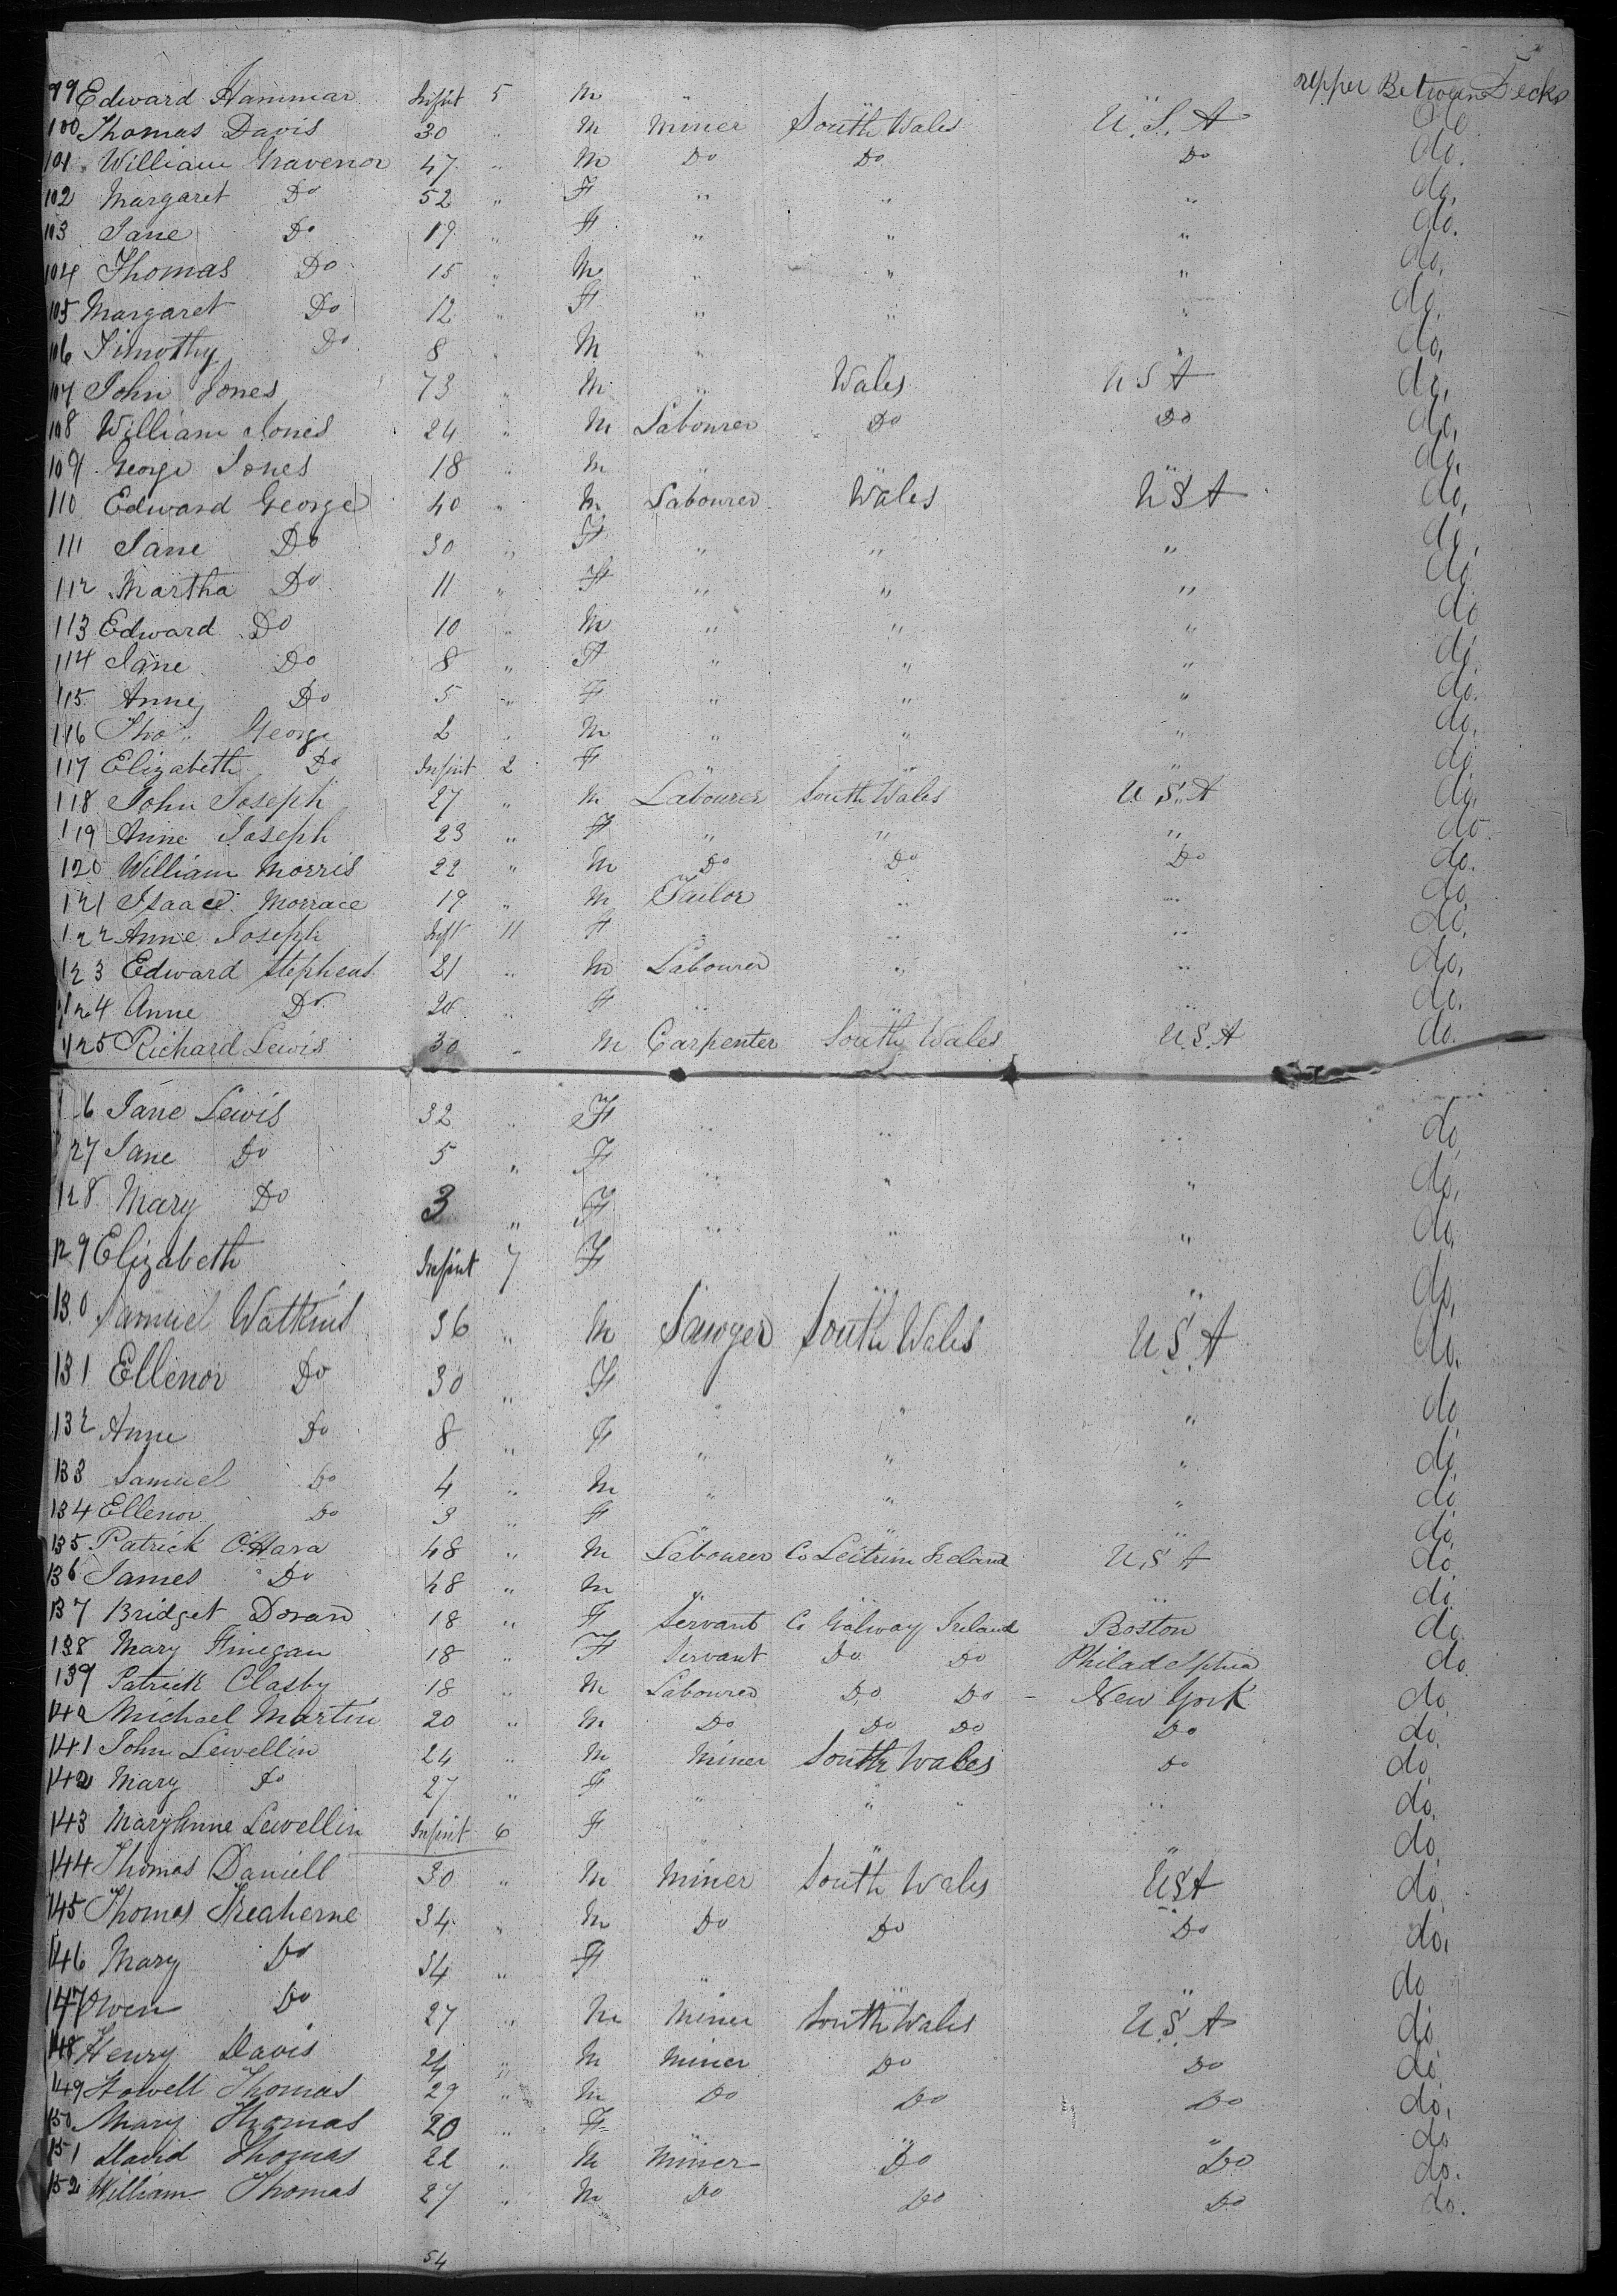 99 Edward Hammar Infint 5 M " upper Between Decks
100 Thomas Davis 30 " M Miner South Wales U.S.A do
101 William Gravenor 47 " M Do Do Do do.
102 Margaret Do 52 " F " " " do,
103 Jane Do 19 " F " " " do.
104 Thomas Do 15 " M " " " do,
105 Margaret Do 12 " F " " " do,
106 Timothy Do 8 " M " " " do,
107 John Jones 73 " M " Wales USA do,
108 William Jones 24 " M Labourer Do Do do,
109 George Jones 18 " M " " " do,
110 Edward George 40 " M Labourer Wales USA do,
111 Jane Do 30 " F " " " do,
112 Martha Do 11 " F " " " do
113 Edward Do 10 " M " " " do
114 Jane Do 8 " F " " " do.
115 Anne Do 5 " F " " " do.
116 Tho" George 2 " M " " " do,
117 Elizabeth Do Infint 2 F " " " do
118 John Joseph 27 " M Labourer South Wales U.S.A do,
119 Anne Joseph 23 " F " " " do.
120 William Morris 22 " M Do Do Do do.
121 Isaac Morrace 19 " M Tailor " " do,
122 Anne Joseph Inft 11 F " " " do,
123 Edward Stephens 21 " M Labourer " " do,
124 Anne Do 20 " F " " " do.
125 Richard Lewis 30 " M Carpenter South Wales U.S.A do.
6 Jane Lewis 32 " F " " " do,
27 Jane Do 5 " F " " " do,
128 Mary Do 3 " F " " " do,
129 Elizabeth Infint 7 F " " " do,
130 Samuel Watkins 36 " M Sawyer South Wales U.S.A do.
131 Ellenor Do 30 " F " " " do
132 Anne Do 8 " F " " " do
133 Samuel Do 4 " M " " " do
134 Ellenor Do 3 " F " " " do,
135 Patrick O'Hara 48 " M Labourer Co Leitrim Ireland U.S.A do
136 James Do 48 " M " " " do.
137 Bridget Doran 18 " F Servant Co Galway Ireland Boston do.
138 Mary Finegan 18 " F Servant Do Do Philadelphia do.
139 Patrick Clasby 18 " M Laboured Do Do - New York do,
140 Michael Martin 20 " M Do Do Do Do do,
141 John Lewellin 24 " M Miner South Wales Do do,
142 Mary Do 27 " F " " " do,
143 MaryAnne Lewellin Infint 6 F " " " do,
144 Thomas Daniell 30 " M Miner South Wales USA do,
145 Thomas Treaherne 34 " M Do Do Do do,
146 Mary Do 34 " F " " " do
147 Owen Do 27 " M Miner South Wales U.S.A do
148 Henry Davis 24 " M Miner Do Do do,
149 Howell Thomas 29 " M Do Do Do do,
150 Mary Thomas 20 " F " " " do
151 David Thomas 22 " M Miner Do Do do.
152 William Thomas 27 " M Do Do Do do.
54